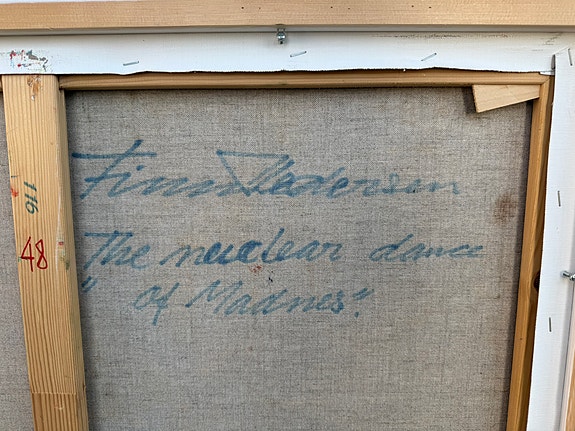 Finn Pedersen
The nuclear dance
" of Madnes".
116
48